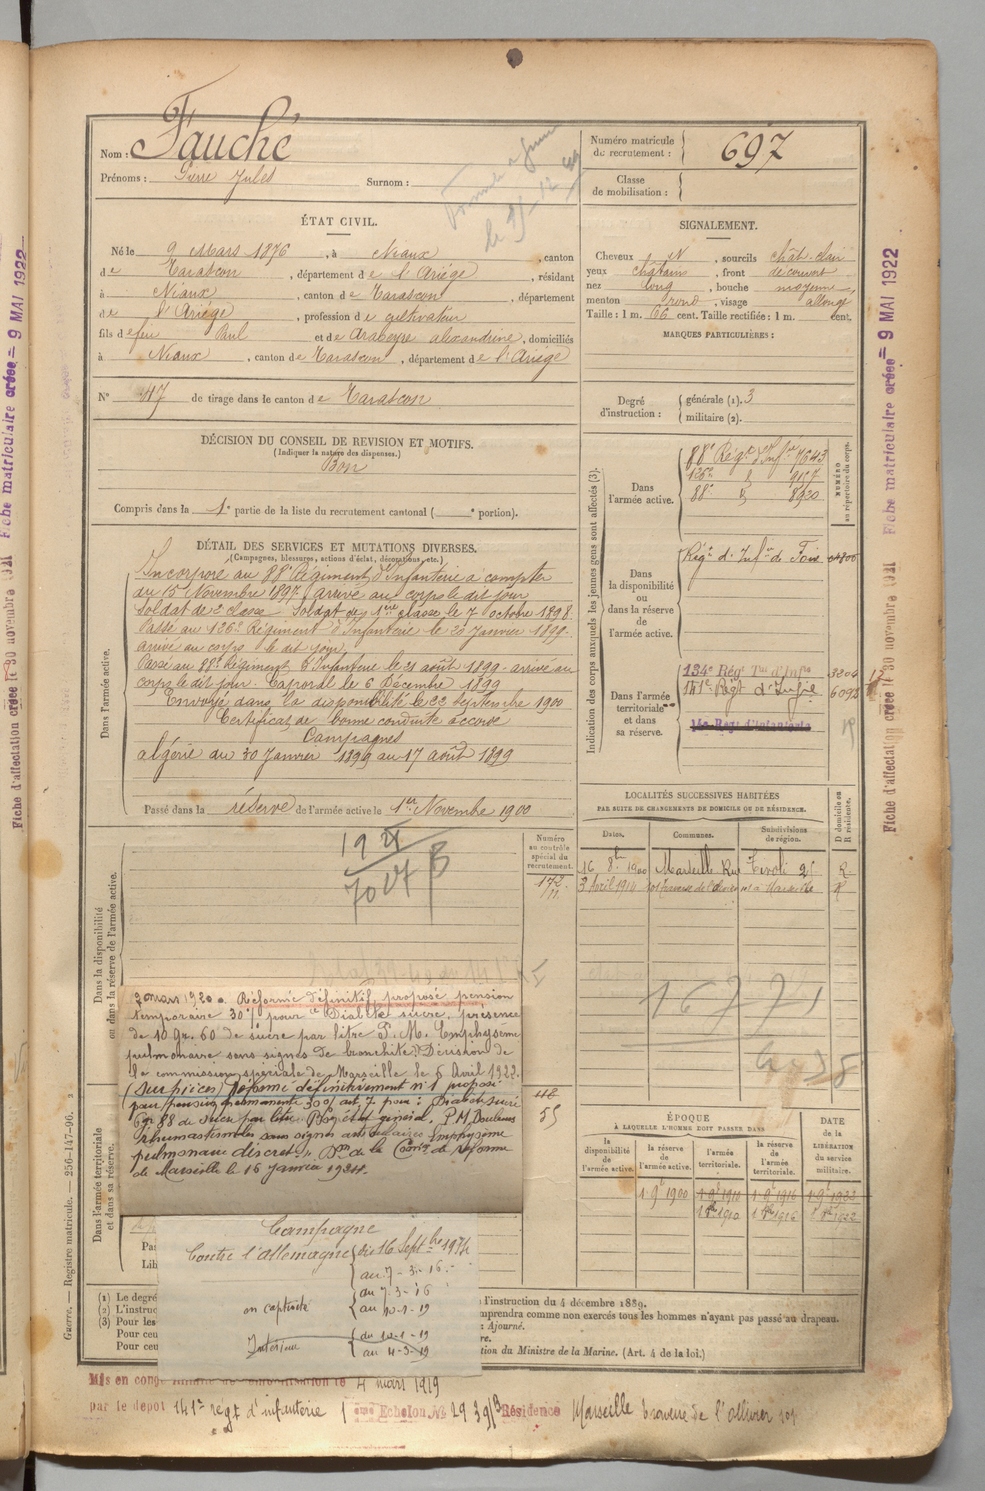 Nom : Fauché
Prénoms : Pierre Jules Surnom :
Numéro matricule de recrutement : 697
Classe de mobilisation :
ÉTAT CIVIL.
Né le 9 Mars 1876, à Niaux, canton
de Tarascon, département de l'Ariège, résidant
à Niaux, canton de Tarascon, département
de l'Ariège, profession de cultivateur
fils de feu Paul et de Arabeyre alexandrine, domiciliés
à Niaux, canton de Tarascon, département de l'Ariège
SIGNALEMENT.
Cheveux N, sourcils chât. clair
yeux châtains, front découvert
nez long, bouche moyenne,
menton rond, visage allongé
Taille : 1 m. 66 cent. Taille rectifiée : 1 m. cent.
MARQUES PARTICULIÈRES :
N° 47 de tirage dans le canton de Tarascon
Degré d'instruction : générale (1). 3
militaire (2).
DÉCISION DU CONSEIL DE REVISION ET MOTIFS.
(Indiquer la nature des dispenses.)
Bon
Compris dans la 1e partie de la liste du recrutement cantonal ( e portion).
DÉTAIL DES SERVICES ET MUTATIONS DIVERSES.
(Campagnes, blessures, actions d'éclat, décorations, etc.)
Dans l'armée active.
Incorporé au 88e Régiment d'Infanterie à compter
du 15 Novembre 1897. arrivé au corps le dit jour
soldat de 2e classe. Soldat de 1ère classe le 7 octobre 1898.
Passé au 126e Régiment d'Infanterie le 20 Janvier 1899.
arrivé au corps le dit jour.
Passé au 88e Régiment d'Infanterie le 21 août 1899. arrivé au
corps le dit jour. Caporal le 6 Décembre 1899
Envoyé dans la disponibilité le 22 septembre 1900
Certificat de bonne conduite accordé
Campagnes
algérie du 30 Janvier 1899 au 17 août 1899
Passé dans la réserve de l'armée active le 1er Novembre 1900
Indication des corps auxquels les jeunes gens sont affectés (3).
NUMÉRO au répertoire du corps.
Dans l'armée active.
88e Régt d'Infie 7643
88e 8920
Dans la disponibilité ou dans la réserve de l'armée active.
Régt d'Infie de Foix
Dans l'armée territoriale et dans sa réserve.
134e Régt Tal d'Infie
141e Régt d'Infie 6092
LOCALITÉS SUCCESSIVES HABITÉES
PAR SUITE DE CHANGEMENTS DE DOMICILE OU DE RÉSIDENCE.
Dates. Communes. Subdivisions de région. D domicile ou R résidence.
16 8bre 1900 Marseille Rue Tivoli 25 R
3 Avril 1914
Numéro au contrôle spécial du recrutement.
172
11
Dans la disponibilité ou dans la réserve de l'armée active.
16771
2 mars 1920. Réformé définitif, proposé pension
temporaire 30% pour Diabète sucré, présence
de 10 gr. 60 de sucre par litre P. M. Emphysème
pulmonaire sans signes de bronchite. Décision de
la commission spéciale de Marseille le 5 Avril 1922.
(sur pièces) Réformé définitivement n°1 proposé
pour pension permanente 30% art. 7 pour : Diabète sucré
6gr 88 de sucre par litre. Bon état général. P.M. Douleurs
rhumatismales sans signes articulaires Emphysème
pulmonaire discret. Don de la Comon de réforme
de Marseille le 16 janvier 1924.
55
Dans l'armée territoriale et dans sa réserve.
Campagne
Contre l'allemagne du 16 Septbre 1914
au 7-3-16.-
en captivité du 7-3-16
au 10-1-19
Intérieur du 10-1-19
au 4-3-19
ÉPOQUE
À LAQUELLE L'HOMME DOIT PASSER DANS
la disponibilité de l'armée active.
la réserve de l'armée active.
l'armée territoriale.
la réserve de l'armée territoriale.
DATE de la LIBÉRATION du service militaire.
1 9e 1900 1 9e 1910 1 9e 1916 1 9e 1922
(1) Le degré
l'instruction du 4 décembre 1889.
(2) L'instruc
mprendra comme non exercés tous les hommes n'ayant pas passé au drapeau.
(3) Pour les
: Ajourné.
Pour ceu
re.
Pour ceu
tion du Ministre de la Marine. (Art. 4 de la loi.)
Guerre. — Registre matricule. — 256-147-96.
Mis en congé le 4 mars 1919
par le dépôt 141e regt d'infanterie 1 eme Echelon N° 2939/B Résidence Marseille traverse de l'ollivier 101
Fiche d'affectation créée le 30 novembre 1921
Fiche matriculaire créée = 9 MAI 1922
Fiche d'affectation créée le 30 novembre 1921
Fiche matriculaire créée = 9 MAI 1922